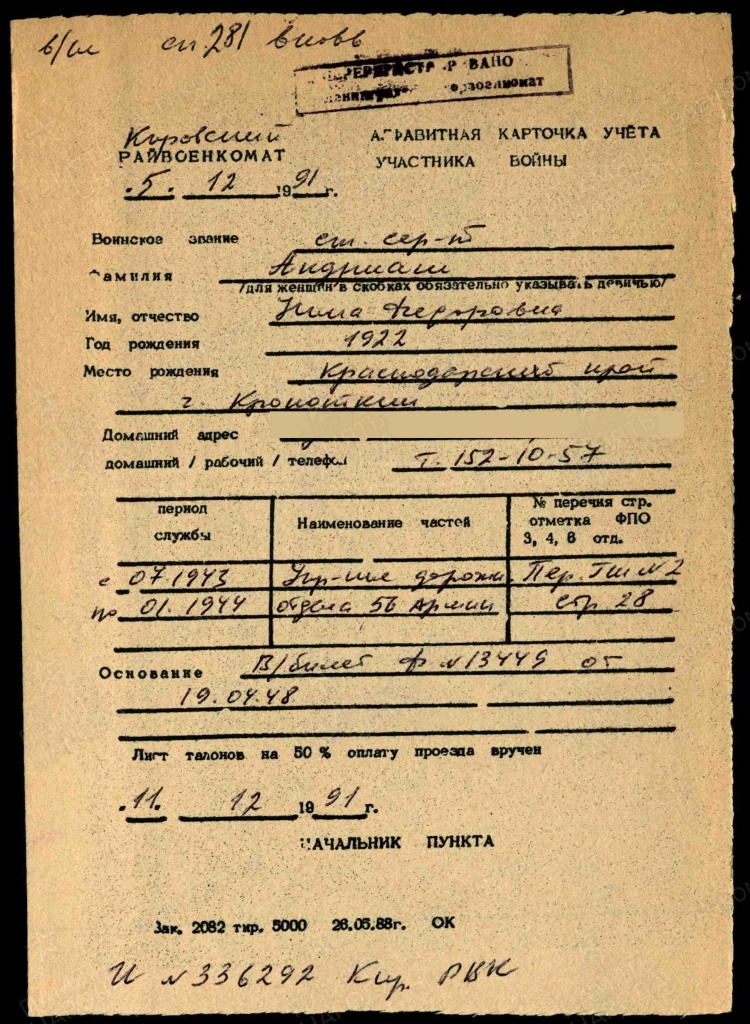 в/сл сп. 281 вновь
ПЕРЕРЕГИСТРИРОВАНО
Кировский
РАЙВОЕНКОМАТ
АЛФАВИТНАЯ КАРТОЧКА УЧЁТА
УЧАСТНИКА ВОЙНЫ
.5. 12 1991 г.
Воинское звание ст. сер-т
Фамилия Андриаш
/для женщин в скобках обязательно указывать девичью/
Имя, отчество Нина Федоровна
Год рождения 1922
Место рождения Краснодарский край
г. Кропоткин
Домашний адрес
домашний / рабочий / телефон Т. 152-10-57
период службы
Наименование частей
№ перечня стр. отметка ФПО 3, 4, 6 отд.
с 07.1943 Упр-ние дорожн. Пер. Гш №2
по 01.1944 отдела 56 Армии стр 28
Основание В/билет ф №13449 от
19.04.48
Лист талонов на 50 % оплату проезда вручен
.11. 12 1991 г.
НАЧАЛЬНИК ПУНКТА
Зак. 2082 тир. 5000 26.05.88г. ОК
И №336292 Кир. РВК